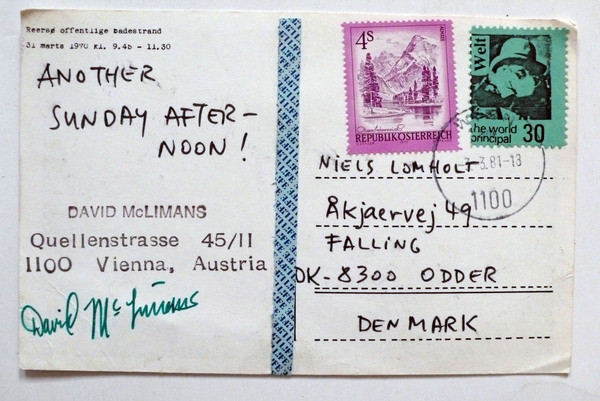 Reersø offentlige badestrand
31 marts 1970 kl. 9.45 - 11.30
ANOTHER
SUNDAY AFTER-
NOON!
DAVID McLIMANS
Quellenstrasse 45/II
1100 Vienna, Austria
David McLimans
4S
REPUBLIK ÖSTERREICH
Welt
the world
principal 30
3.81-13
1100
NIELS LOMHOLT
Åkjaervej 49
FALLING
DK-8300 ODDER
DENMARK